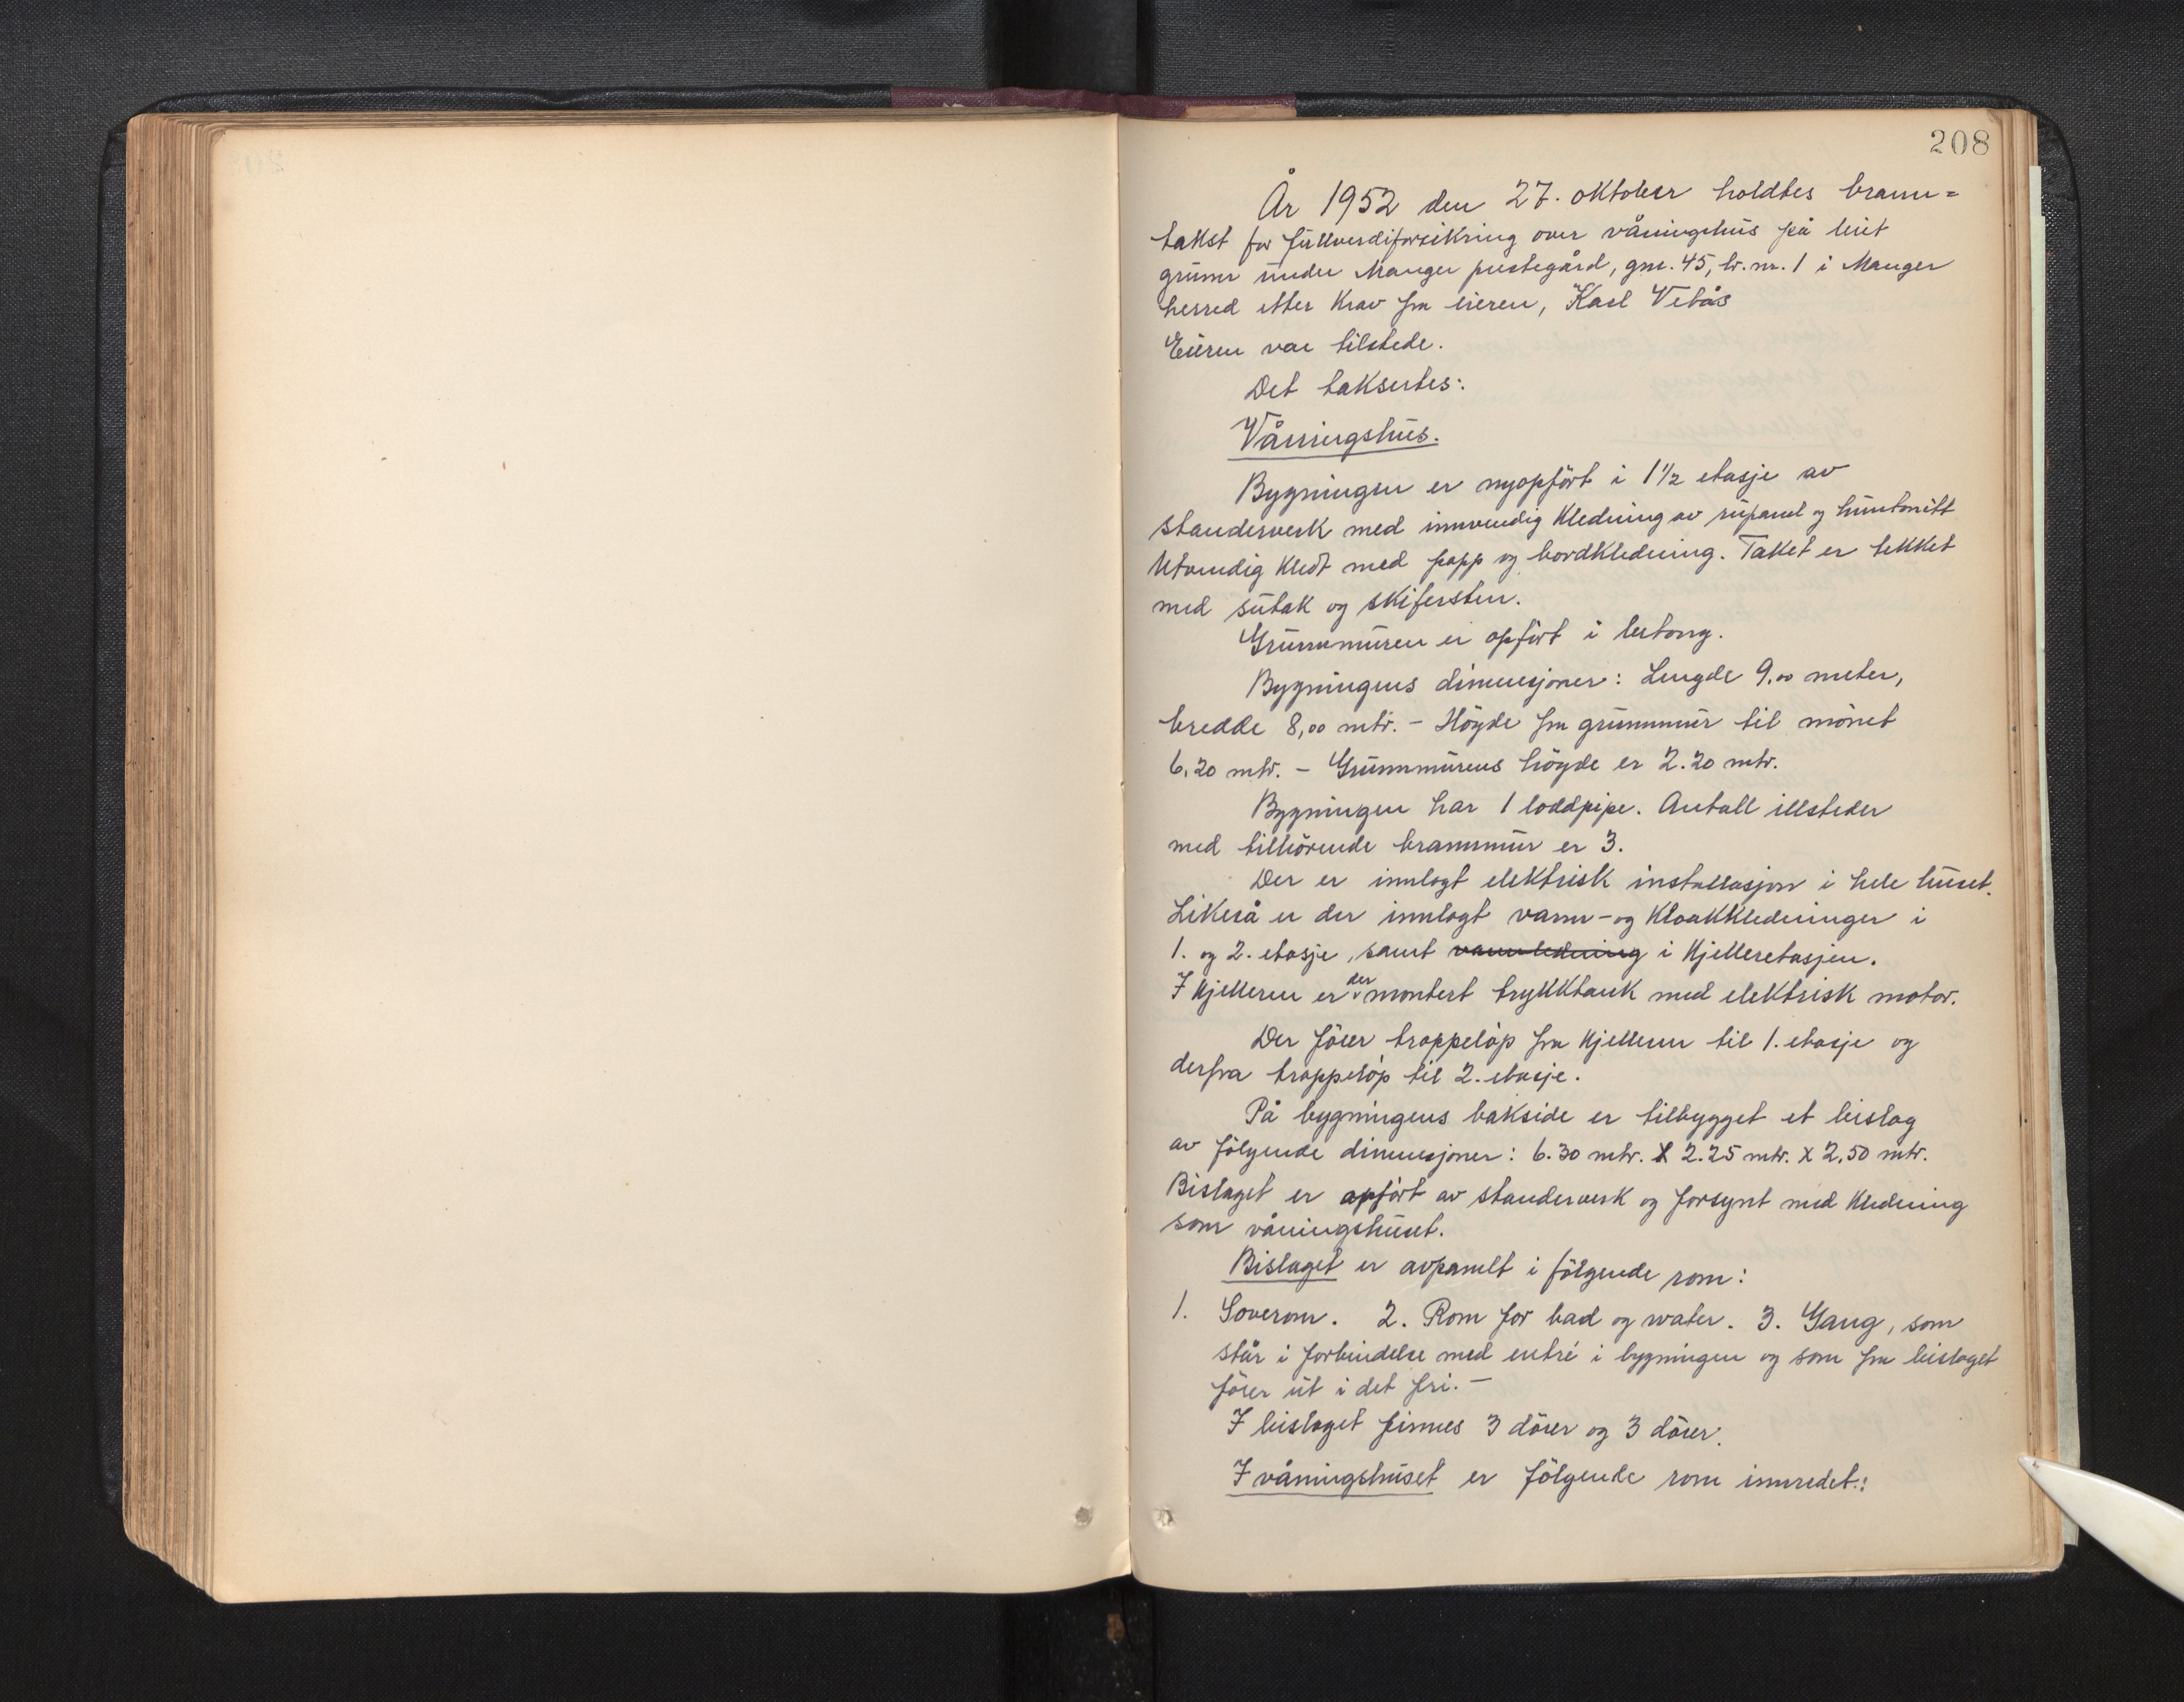 208
År 1952 den 27. oktober holdtes brann=
takst for fullverdiforsikring over våningshus på leiet
grunn under Manger prestegård, gnr. 45, br. nr. 1 i Manger
herred etter krav fra eieren, Karl Vetås
Eieren var tilstede.
Det taksertes:
Våningshus.
Bygningen er nyopført i 1 1/2 etasje av
standerverk med innvendig kledning av rupanel og huntonitt
Utvendig kledt med papp og bordkledning. Taket er tekket
med sutak og skifersten.
Grunnmuren er opført i betong.
Bygningens dimensjoner: Lengde 9.00 meter,
bredde 8,00 mtr. - Høyde fra grunnmur til mønet
6.20 mtr. - Grunnmurens høyde er 2.20 mtr.
Bygningen har 1 loddpipe. Antall illsteder
med tilhørende brannmur er 3.
Der er innlagt elektrisk installasjon i hele huset.
Likeså er der innlagt vann- og kloakkledninger i
1. og 2. etasje, samt vannledning i kjelleretasjen.
I kjelleren er der montert trykktank med elektrisk motor.
Der fører trappeløp fra kjelleren til 1. etasje og
derfra trappeløp til 2. etasje.
På bygningens bakside er tilbygget et bislag
av følgende dimensjoner: 6.30 mtr. x 2.25 mtr. x 2.50 mtr.
Bislaget er opført av standerverk og forsynt med kledning
som våningshuset.
Bislaget er avpanelt i følgende rom:
1. Soverom. 2. Rom for bad og water. 3. Gang, som
står i forbindelse med entré i bygningen og som fra bislaget
fører ut i det fri. -
I bislaget finnes 3 dører og 3 dører.
I våningshuset er følgende rom innredet: